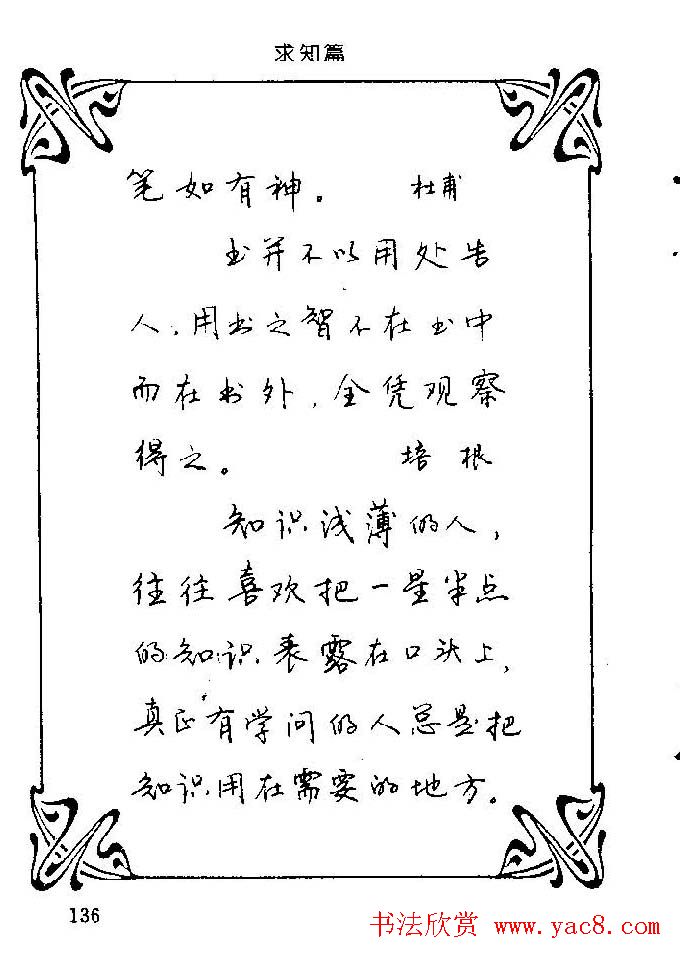 求知篇
笔如有神。 杜甫
书并不以用处告
人，用书之智不在书中
而在书外，全凭观察
得之。 培根
知识浅薄的人，
往往喜欢把一星半点
的知识表露在口头上，
真正有学问的人总是把
知识用在需要的地方。
136
书法欣赏 www.yac8.com